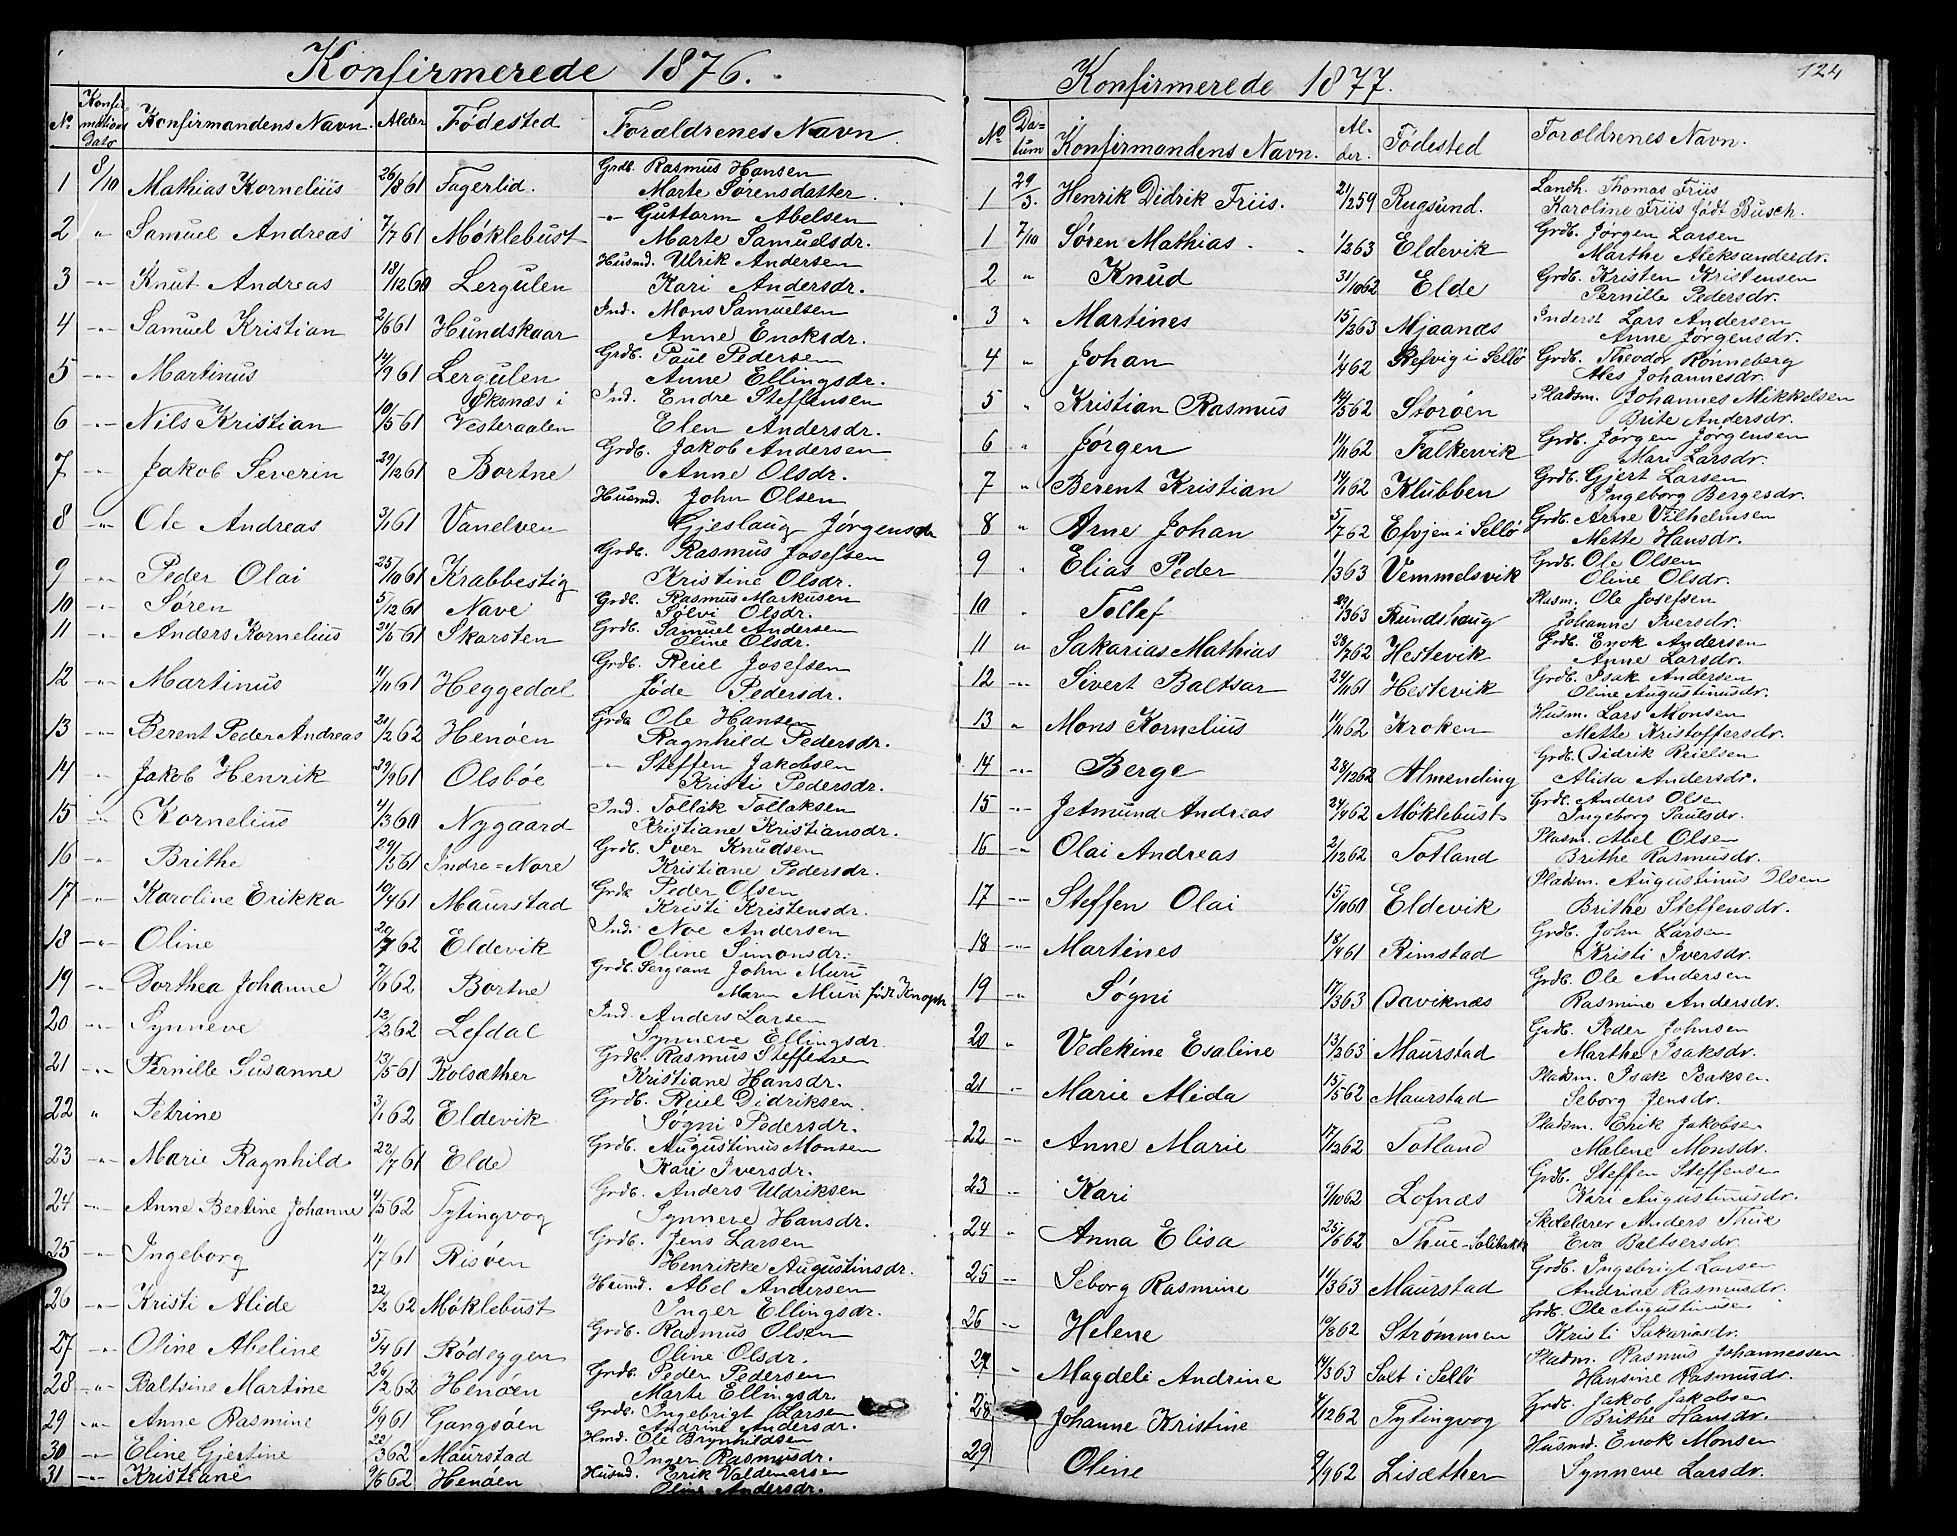 Konfirmerede 1876.
No. Konfirmations Dato Konfirmandens Navn. Alder Fødested Forældrenes Navn.
1 8/10 Mathias Kornelius 26/8 61 Fagerlid. Grdb. Rasmus Hansen
Marte Sørensdatter.
2 " Samuel Andreas 7/7 61 Møklebust -"- Guttorm Abelsen
Marte Samuelsdr.
3 -"- Knut Andreas 18/12 60 Lergulen Husmd. Ulrik Andersen
Kari Andersdr.
4 -"- Samuel Kristian 2/6 61 Hundskaar Ind. Mons Samuelsen
Anne Enoksdr.
5 -"- Martinus 14/9 61 Lergulen Grdb. Paul Pedersen
Anne Ellingsdr.
6 -"- Nils Kristian 10/5 61 Øksnæs i Vesteraalen Ind. Endre Steffensen
Elen Andersdr.
7 -"- Jakob Severin 29/12 61 Bortne Grdb. Jakob Andersen
Anne Olsdr.
8 -"- Ole Andreas 3/1 61 Vanelven Husmd. John Olsen
Gjeslaug Jørgensdr
9 -"- Peder Olai 25/10 61 Krabbestig Grdb. Rasmus Josefsen
Kristine Olsdr.
10 -"- Søren 5/12 61 Nave Grdb. Rasmus Markusen
Sølvi Olsdr.
11 -"- Anders Kornelius 21/5 61 Skarsten Grdb. Samuel Andersen
Oline Olsdr.
12 -"- Martinus 11/11 61 Heggedal Grdb. Reiel Josefsen
Jøde Pedersdr.
13 -"- Berent Peder Andreas 20/2 62 Henøen Grdb Ole Hansen
Ragnhild Pedersdr.
14 -"- Jakob Henrik 29/9 61 Olsbøe -"- Steffen Jakobsen
Kristi Pedersdr.
15 -"- Kornelius 4/3 60 Nygaard Ind. Tollak Tollaksen
Kristiane Kristiansdr.
16 -"- Brithe 29/5 61 Indre=Nore Grdb. Iver Knudsen
Kristiane Pedersdr.
17 -"- Karoline Erikka 19/4 61 Maurstad Grdb Peder Olsen
Kristi Kristensdr.
18 -"- Oline 20/7 62 Eldevik Ind. Noe Andersen
Oline Simonsdr.
19 -"- Dorthea Johanne 7/6 62 Bortne Grdb. Sergeant John Muri
Maren Muri født Knoph
20 -"- Synneve 12/2 62 Lefdal Ind. Anders Larsen
Synneve Ellingsdr.
21 -"- Pernille Susanne 13/5 61 Kolsæther Grdb. Rasmus Steffensen
Kristiane Hansdr.
22 " Petrine 3/1 62 Eldevik Grdb. Reiel Didriksen
Søgni Pedersdr.
23 -"- Marie Ragnhild 22/7 61 Elde Grdb. Augustinus Monsen
Kari Iversdr.
24 -"- Anne Bertine Johanne 4/5 62 Tytingvog Grdb. Anders Uldriksen
Synneve Hansdr.
25 -"- Ingeborg 11/7 61 Risøen Grdb. Jens Larsen
Henrikke Augustinsdr.
26 -"- Kristi Alide 22/2 62 Møklebust Husmd. Abel Andersen
Inger Ellingsdr.
27 -"- Oline Abeline 5/4 61 Rødeggen Grdb. Rasmus Olsen
Oline Olsdr.
28 -"- Baltsine Martine 26/2 62 Henøen Grdb. Peder Pedersen
Marte Ellingsdr.
29 -"- Anne Rasmine 6/9 61 Gangsøen Grdb. Ingebrigt Larsen
Andrine Andersdr.
30 -"- Eline Gjertine 22/3 62 Maurstad Hmd. Ole Brynhildsen
Inger Rasmusdr.
31 -"- Kristiane 9/6 62 Henøen Husmd. Erik Valdemarsen
Oline Andersdr.
Konfirmerede 1877.
124
No Datum Konfirmandens Navn. Alder. Fødested Forældrenes Navn.
1 29/3. Henrik Didrik Friis. 21/2 59 Rugsund. Landh. Thomas Friis
Karoline Friis født Busch.
1 7/10 Søren Mathias. 1/2 63 Eldevik Grdb. Jørgen Larsen
Marthe Aleksandersdr.
2 " Knud 31/10 62 Elde Grdb. Kristen Kristensen
Pernille Pedersdr.
3 " Martines 15/2 63 Mjaanæs Inderst Lars Andersen
Anne Jørgensdr.
4 " Johan 1/4 62 Refvig i Sellø Grdb. Theodor Rønneberg
Ales Johannesdr.
5 " Kristian Rasmus 14/5 62 Storøen Pladsm. Johannes Mikkelsen
Brite Andersdr.
6 " Jørgen 11/11 62 Falkevik Grdb. Jørgen Jørgensen
Mari Larsdr.
7 " Berent Kristian 14/11 62 Klubben Grdb. Gjert Larsen
Ingeborg Bergesdr.
8 " Arne Johan 5/7 62 Efvjen i Sellø Grdb. Arne Vilhelmsen
Mette Hansdr.
9 " Elias Peder 1/3 63 Vemmelsvik Grdb. Ole Olsen
Oline Olsdr.
10 " Tollef 29/3 63 Kundshaug Pladsm. Ole Josefsen
Johanne Iversdr.
11 " Sakarias Mathias 28/7 62 Hestevik Grdb. Enok Andersen
Anne Larsdr.
12 -"- Sivert Baltsar 24/11 61 Hestevik Grdb. Isak Andersen
Oline Augustinusdr.
13 " Mons Kornelius 11/11 62 Kroken Husm. Lars Monsen
Mette Kristoffersdr.
14 -"- Berge 28/12 62 Almending Grdb. Didrik Reielsen
Alida Andersdr.
15 -"- Jetmund Andreas 24/9 62 Møklebust Grdb. Anders Olsen
Ingeborg Paulsdr.
16 -"- Olai Andreas 2/12 62 Totland Pladsm. Abel Olsen
Brithe Rasmusdr.
17 -"- Steffen Olai 15/10 60 Eldevik Pladsm. Augustinus Olsen
Brithe Steffensdr.
18 -"- Martines 18/4 61 Rimstad Grdb. John Larsen
Kristi Iversdr.
19 -"- Søgni 17/3 63 Daviknæs Grdb. Ole Andersen
Rasmine Andersdr.
20 " Vedekine Esaline 13/2 63 Maurstad Grdb. Peder Johnsen
Marthe Isaksdr.
21 -"- Marie Alida 15/5 62 Maurstad Pladsm. Isak Isaksen.
Seborg Jensdr.
22 -"- Anne Marie 17/12 62 Totland Pladsm. Erik Jakobsen
Malene Monsdr.
23 -"- Kari 9/10 62 Lofnæs Grdb. Steffen Steffensen
Kari Augustinusdr.
24 " Anna Elisa 25/6 62 Thue-Solibakke Skolelærer Anders Thue
Eva Baltsersdr.
25 -"- Seborg Rasmine 11/3 63 Maurstad Grdb. Ingebrigt Larsen
Andrine Rasmusdr.
26 -"- Helene 10/8 62 Strømmen Grdb. Ole Augustinusen
Kristi Sakariasdr.
27 " Magdeli Andrine 14/3 63 Salt i Sellø Pladsm. Rasmus Johannessen
Hansine Rasmusdr.
28 Johanne Kristine 7/12 62 Tytingvog Grdb. Jakob Jakobsen
Brithe Hansdr.
29 Oline 9/9 62 Lisæther Husmd. Enok Monsen
Synneve Larsdr.